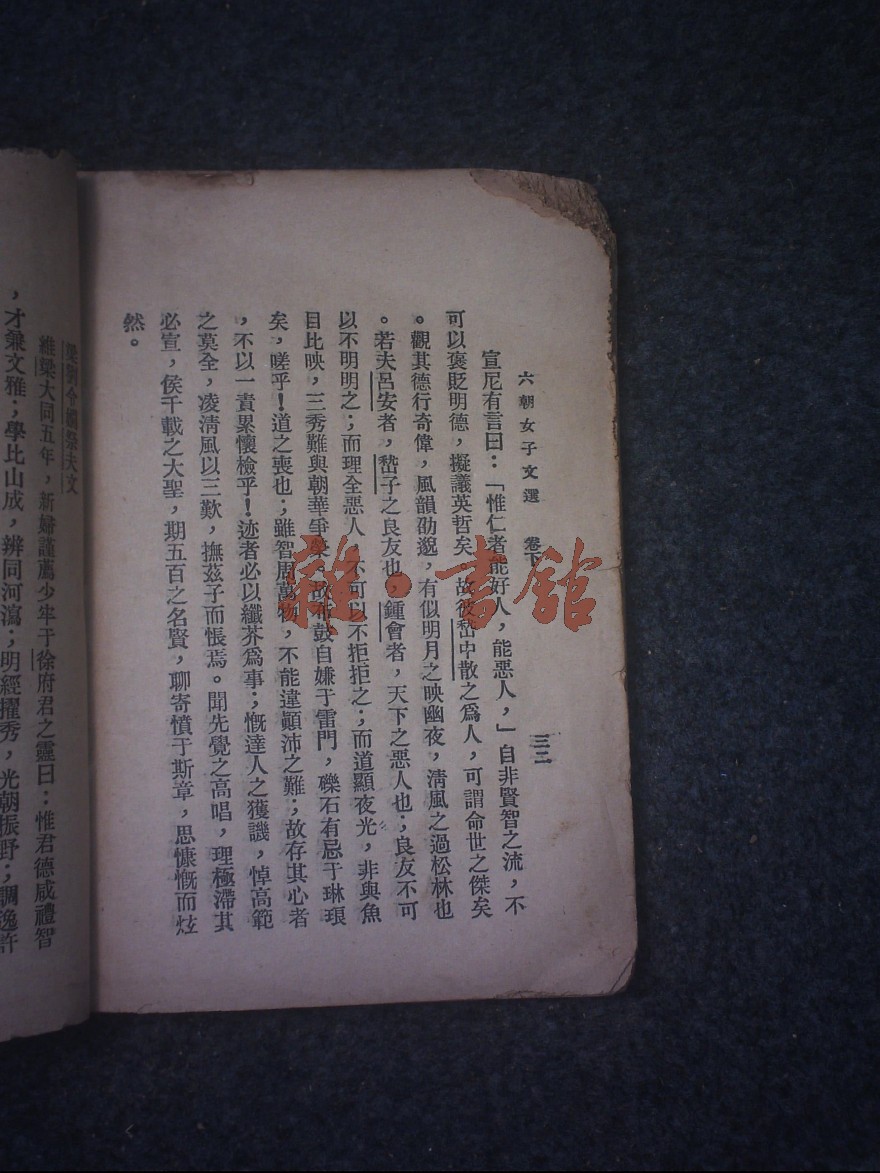 六朝女子文選　卷下　三二
宣尼有言曰：「惟仁者能好人，能惡人，」自非賢智之流，不
可以褒貶明德，擬議英哲矣。故彼嵇中散之爲人，可謂命世之傑矣
。觀其德行奇偉，風韻劭邈，有似明月之映幽夜，清風之過松林也
。若夫呂安者，嵇子之良友也，鍾會者，天下之惡人也；良友不可
以不明明之；而理全惡人，不可以不拒拒之；而道顯夜光，非與魚
目比映，三秀難與朝華爭榮，故布鼓自嫌于雷門，礫石有忌于琳琅
矣，嗟乎！道之喪也；雖智周萬物，不能違顚沛之難；故存其心者
，不以一眚累懷檢乎！迹者必以纖芥爲事；慨達人之獲譏，悼高範
之莫全，凌淸風以三歎，撫茲子而悵焉。聞先覺之高唱，理極滯其
必宣，侯千載之大聖，期五百之名賢，聊寄憤于斯章，思慷慨而炫
然。
梁劉令嫺祭夫文
維梁大同五年，新婦謹薦少牢于徐府君之靈曰：惟君德咸禮智
，才兼文雅；學比山成，辨同河瀉；明經擢秀，光朝振野；調逸許
雜·書館